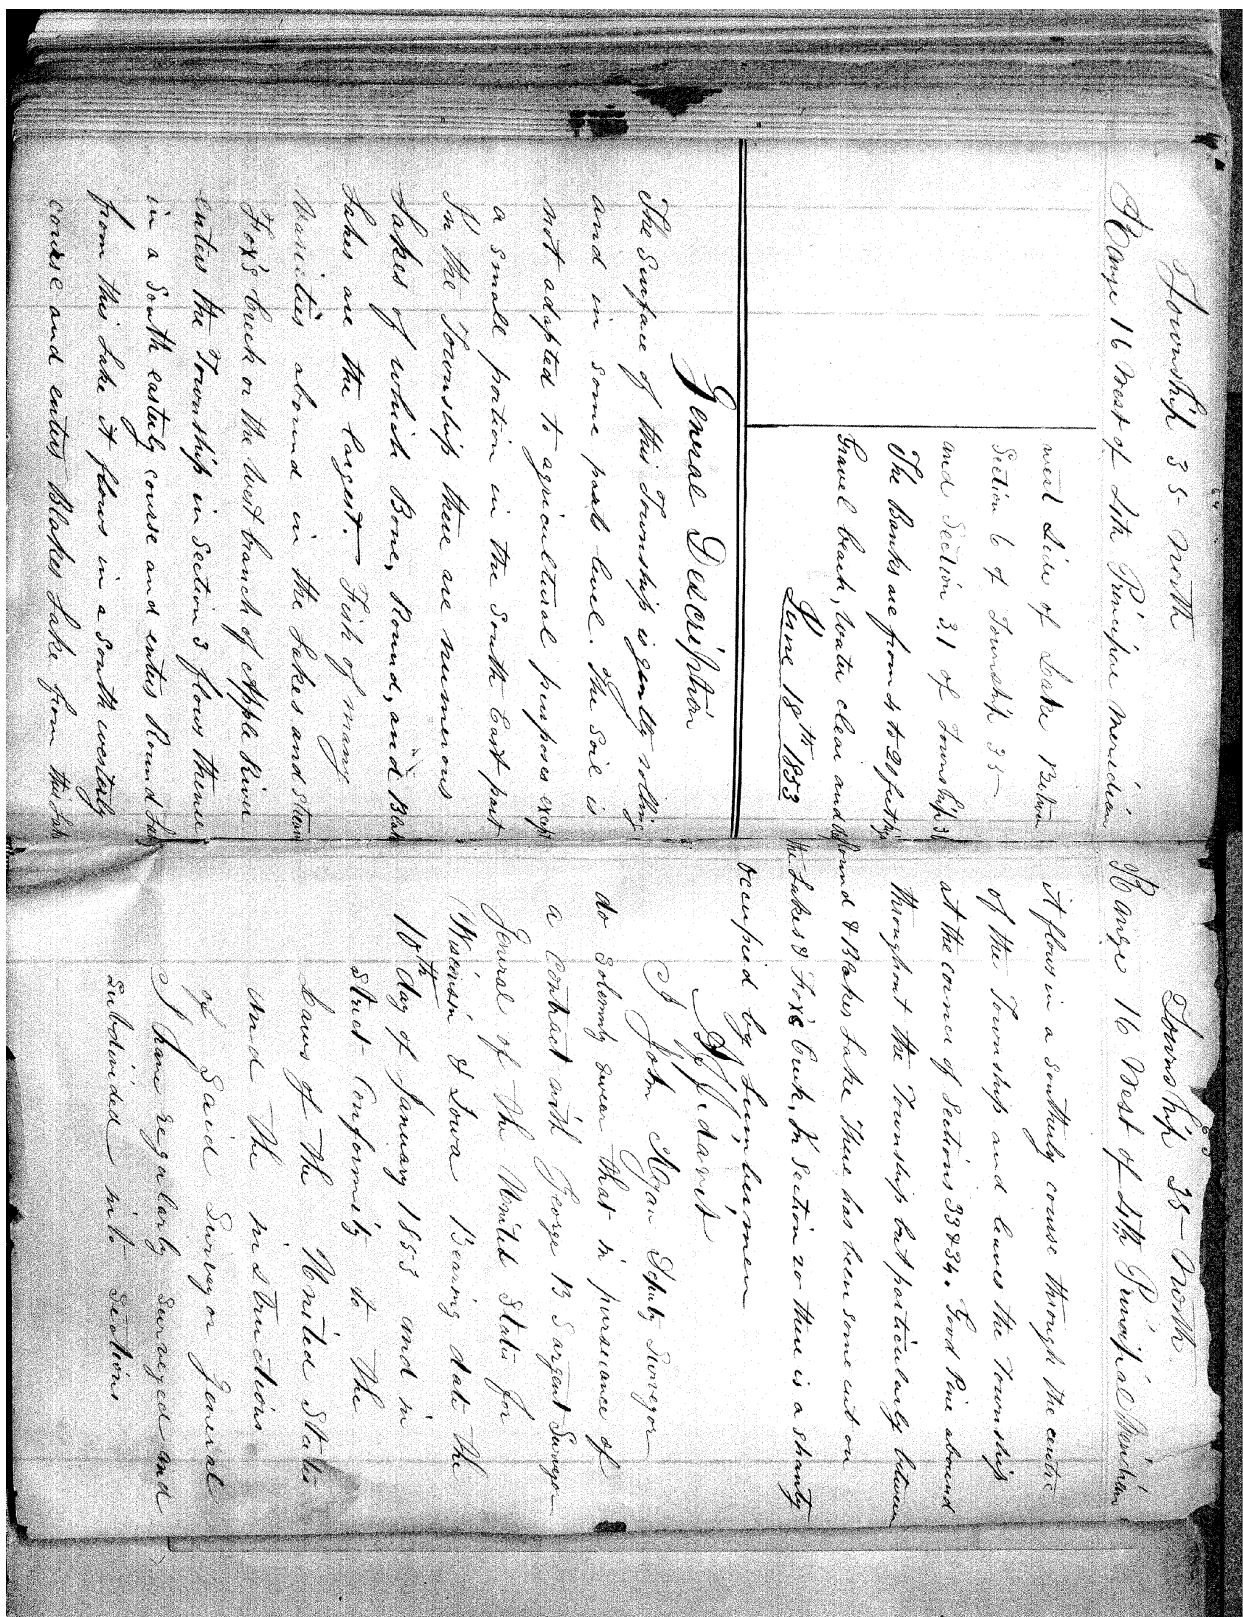 Township 35 North
Range 16 West of 4th Principal Meridian
west Side of Lake Between
Section 6 of Township 35
and Section 31 of Township 36
The Banks are from 5 to 20 feet high
Gravel beach, water clear and
June 18th 1853
General Description
The Surface of this Township is gently rolling
and in some parts level. The Soil is
not adapted to agricultural purposes except
a small portion in the South East part
In the Township there are numerous
Lakes of which Bone, Round, and Blake
Lakes are the largest. Fish of many
Varieties abound in the Lakes and Streams
Fox's Creek or the west branch of Apple River
enters the Township in Section 3 flows thence
in a South easterly course and enters Round Lake
from this Lake it flows in a South westerly
course and enters Blakes Lake from this Lake
Township 35 North
Range 16 West of 4th Principal Meridian
it flows in a Southerly course through the centre
of the Township and leaves the Township
at the corner of Sections 33 & 34. Good Pine abound
throughout the Township but particularly between
Round & Blakes Lake There has been some cut on
the Lakes & Fox's Creek, In Section 20 there is a shanty
occupied by Lumbermen
Affidavit
I John Ryan Deputy Surveyor
do Solemnly swear that in pursuance of
a Contract with George B Sargent Surveyor
General of the United States for
Wisconsin & Iowa Bearing date the
10th day of January 1853 and in
Strict Conformity to the
Laws of the United States
and the instructions
of Said Surveyor General
I have regularly surveyed and
Subdivided into Sections